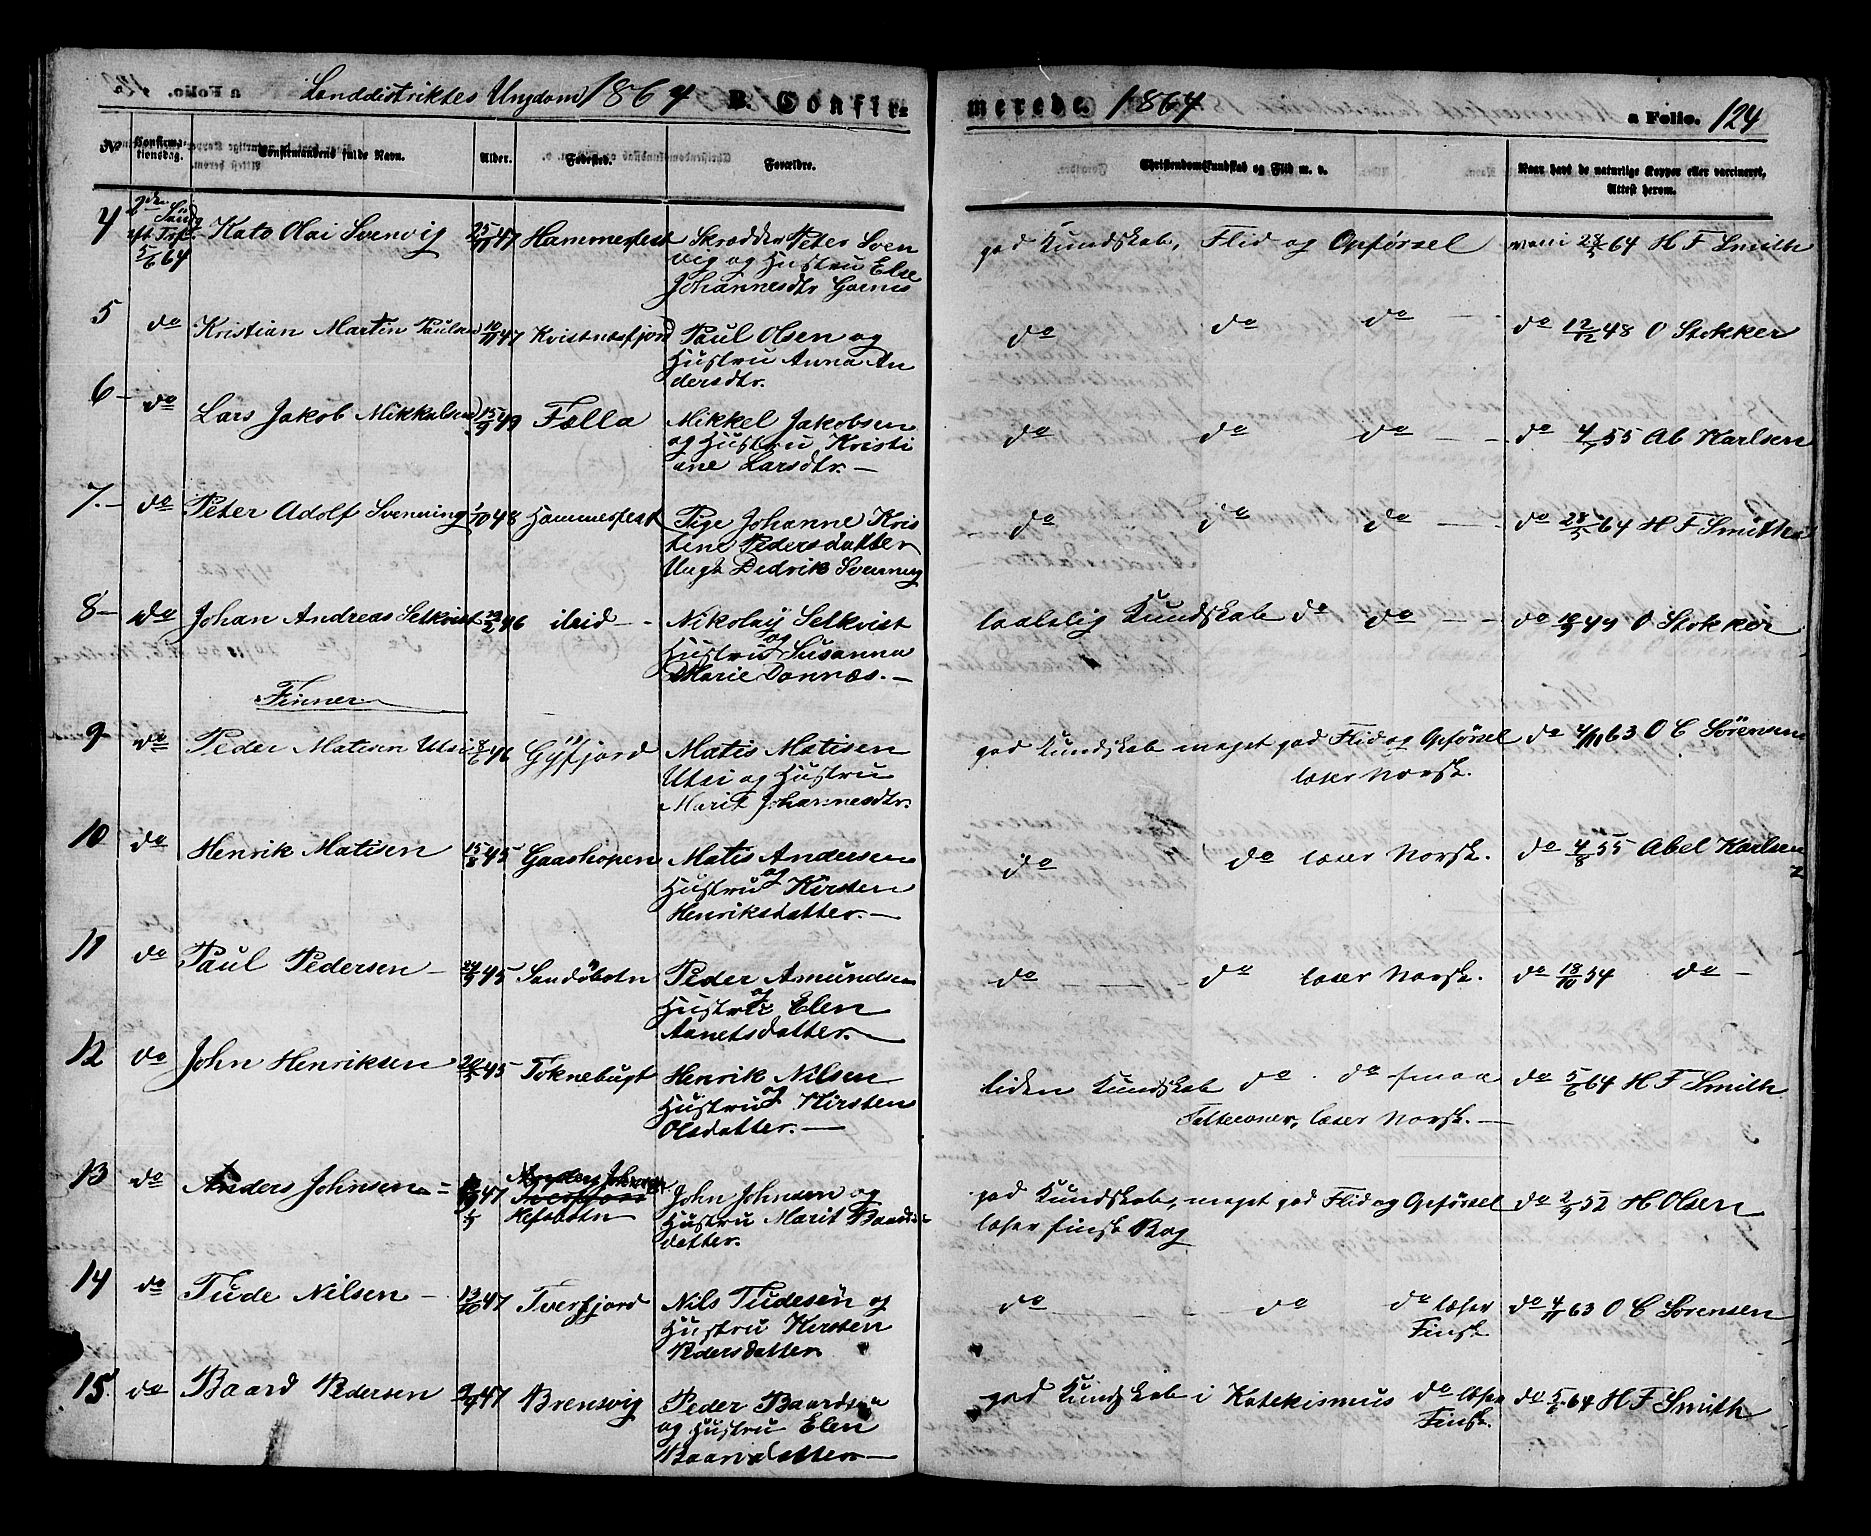 Landdistriktes Ungdom 1864 B. Confir-
merede. 1864 a Folio. 124
No Konfirmationsdag. Confirmandens fulde Navn. Alder. Fødested. Forældre. Christendomskundskab og Flid m. v. Naar havt de naturlige Kopper eller vaccineret, Attest herom.
4 2den Sønd eft. Tref. 5/6 64 Kato Olai Svenvig 25/11 47 Hammerfest Skrædder Peter Sven god Kundskab, Flid og Opførsel vacci 28/5 64 H F Smith
vig og Hustru Else
Johannesdtr Gaenes
5 do Kristian Martin Paulsen 10/10 47 Kvistnæsfjord Paul Olsen og do do do do 12/12 48 O Stokker
Hustru Anna An
dersdtr.
6 do Lars Jakob Mikkelsen 15/9 49 Fælla Mikkel Jakobsen do do do do 4/7 55 Ab Karlsen
og Hustru Kristi
ane Larsdtr.
7. do Peter Adolf Svenning 1/10 48 Hammerfest Pige Johanne Kris do do do do 28/5 64 H F Smith
tine Pedersdatter
Ungk Didrik Svenning
8 do Johan Andreas Selkvist 22/2 46 ibid Nikolaij Selkvist taalelig Kundskab do do do 18/9 49 O Stokker
og
Hustru Susanna
Marie Dannæs.
Finner
9 do Peder Matisen Utsi 8/6 46 Gåsfjord Matis Matisen god Kundskab meget god Flid og Opførsel do 4/11 63 O C Sørensen
Utsi og Hustru læser Norsk.
Marit Johannesdtr.
10 do Henrik Matisen 15/8 45 Gaashopen Matis Andersen do do læser Norsk. do 4/8 55 Abel Karlsen
og
Hustru Kirsten
Henriksdatter.
11 do Paul Pedersen 24/9 45 Sandøbotn Peder Amundsen do do læser Norsk. do 18/10 54 do
og
Hustru Elen
Aanetsdatter.
12 do John Henriksen 20/5 45 Toknebugt Henrik Nilsen liden Kundskab do do smaa do 5/6 64 H F Smith
og
Hustru Kirsten Fatteevner, læser Norsk.
Olsdatter.
13 do Anders Johnsen 47 Refsbotn John Johnsen og god Kundskab, meget god Flid og Opførsel do 2/9 52 H Olsen
Hustru Marit Baards læser finsk Bog
datter.
14 do Tude Nilsen 13/10 47 Tverfjord Nils Tudesen og do do do læser do 4/11 63 O C Sørensen
Hustru Kirsten Finsk
Pedersdatter
15. do Baard Pedersen 9/7 47 Brensvig Peder Baardsen god Kundskab i Katekismus do læser do 5/6 64 H F Smith
og Hustru Elen Finsk.
Baardsdatter